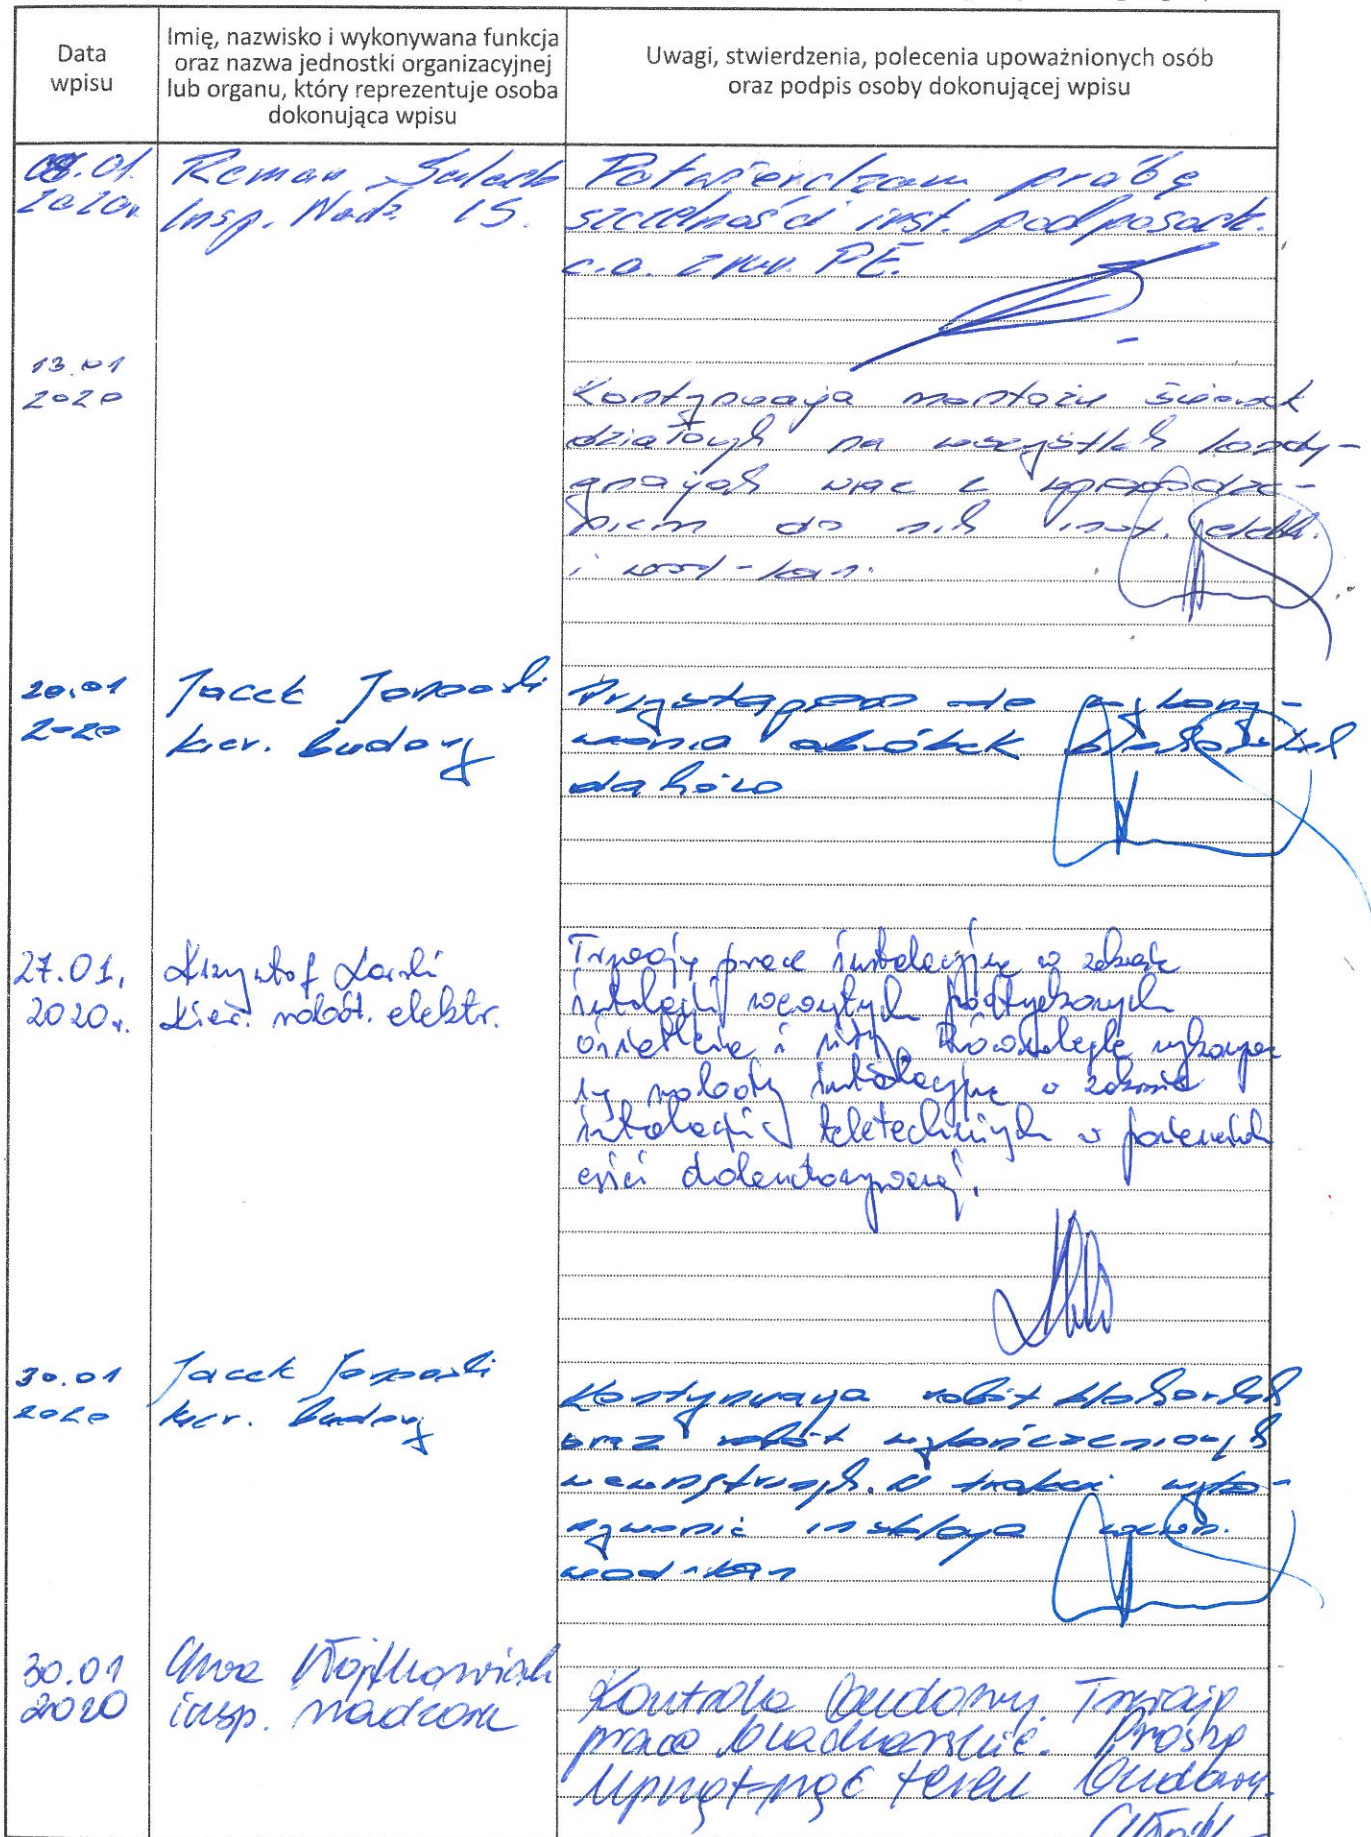 Data
wpisu
Imię, nazwisko i wykonywana funkcja
oraz nazwa jednostki organizacyjnej
lub organu, który reprezentuje osoba
dokonująca wpisu
Uwagi, stwierdzenia, polecenia upoważnionych osób
oraz podpis osoby dokonującej wpisu
.01.
2020r.
Roman
Insp. Nadz. IS.
Potwierdzam próbę
szczelności inst. podposadz.
c.o. z rur. PE.
13.01
2020
Kontynuacja montażu ścianek
działowych na wszystkich kondy-
gnacjach wraz z wprowadze-
niem do nich inst. elektr.
i wod-kan.
20.01
2020
Jacek
kier. budowy
Przystąpiono do wykony-
wania obróbek blacharskich
dachów
27.01.
2020r.
Krzysztof
Kier. robót. elektr.
Trwają prace instalacyjne w zakresie
instalacji podtynkowych
oświetlenia i siły. Równolegle
są roboty instalacyjne w zakresie
instalacji teletechnicznych w
części
30.01
2020
Jacek
kier. budowy
Kontynuacja robót blacharskich
oraz robót wykończeniowych
wewnętrznych. W trakcie wyko-
nywania instalacja
wod-kan
30.01
2020
Anna Wojtkowiak
insp. nadzoru
Kontrola budowy. Trwają
prace blacharskie. Proszę
uprzątnąć teren budowy.